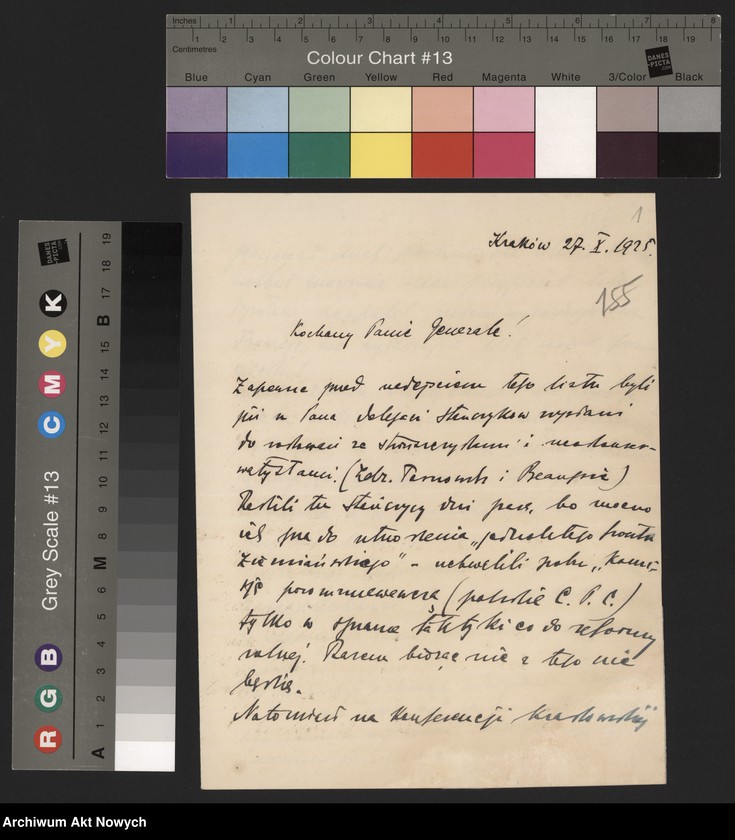 Inches 1 2 3 4 5 6 7 8
1 2 3 4 5 6 7 8 9 10 11 12 13 14 15 16 17 18 19
Centimetres
Colour Chart #13
DANES-PICTA.COM
Blue Cyan Green Yellow Red Magenta White 3/Color Black
DANES-PICTA.COM
R G B Grey Scale #13 C M Y K
A 1 2 3 4 5 6 7 8 9 10 M 11 12 13 14 15 B 17 18 19
1
Kraków 27. X. 1925.
155
Kochany Panie Generale!
Zapewne przed nadejściem tego listu byli
już u Pana delegaci Stańczyków wysłani
do
(Zdz. Tarnowski i Beaupré)
Radzili tu Stańczycy dni parę, bo mocno
ich prą do utworzenia „jednolitego frontu
ziemiańskiego" - uchwalili niby „Komi-
sję porozumiewawczą (patrolie C. P. C.)
tylko w sprawie taktyki co do reformy
rolnej. Razem biorąc nic z tego nie
będzie.
Natomiast na Konferencji
Archiwum Akt Nowych